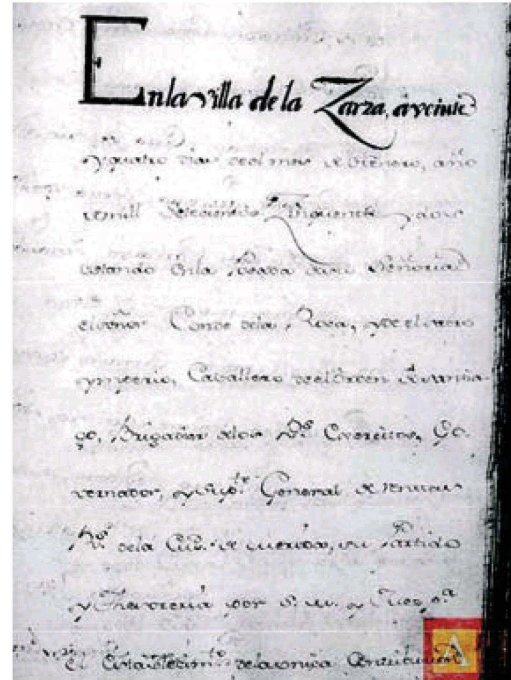 En la villa de la Zarza, a veinte
y quatro dias de el mes de Henero, año
de mill Setecientos Zinquenta y dos
estando en la Posada de su Señoria
el señor Conde de la Roca, y de el
ymperio, Caballero de el Orden de Santia
go, Brigadier de los Rs. Exercitos, Go
vernador, y General de Rentas
Rs. de la Ciud. de Merida, su Partido
y Thesoreria por S. M. y Juez pa.
el Establecimto. de la onica Contribucion
A